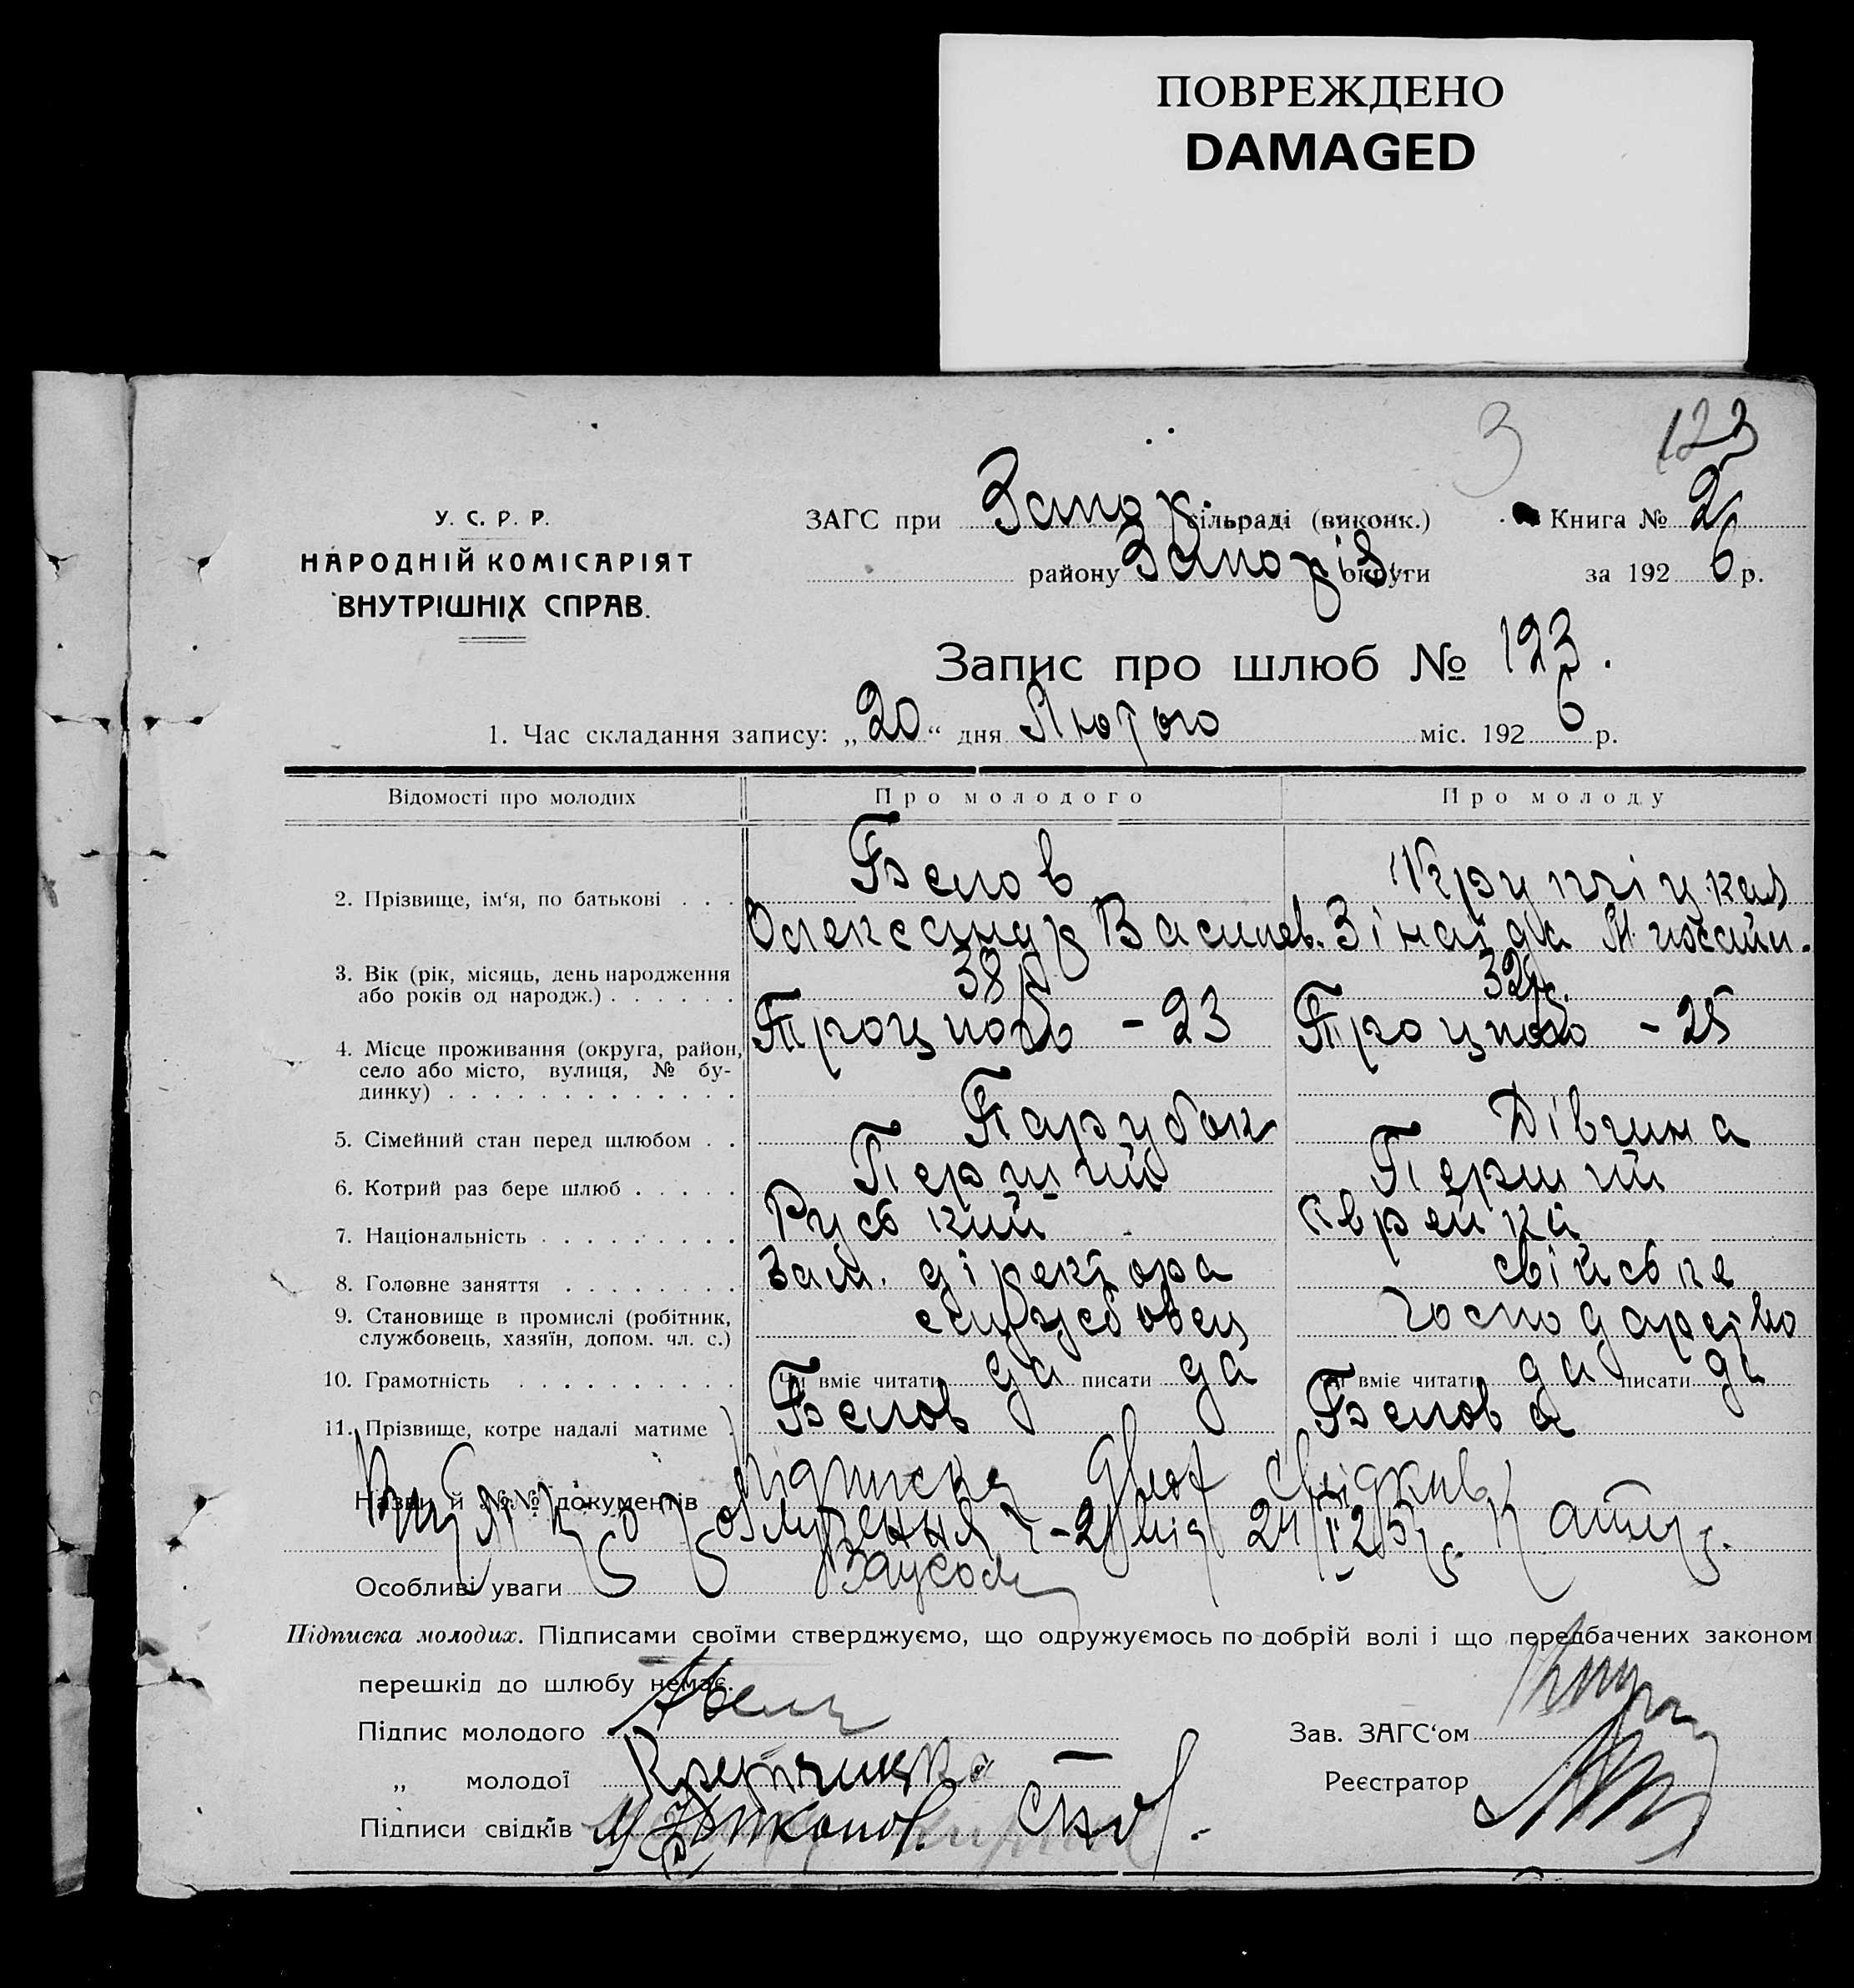 ПОВРЕЖДЕНО
DAMAGED
3 123
У. С. Р. Р.
НАРОДНІЙ КОМІСАРІЯТ
ВНУТРІШНІХ СПРАВ.
ЗАГС при Запор сільраді (виконк.) Книга № 2
району Запоріз округи за 1926 р.
Запис про шлюб № 123.
1. Час складання запису: „20“ дня Лютого міс. 1926 р.
Відомості про молодих Про молодого Про молоду
2. Прізвище, ім‘я, по батькові . . . Белов
Олександр Василев. Зінаїда
3. Вік (рік, місяць, день народження
або років од народж.) . . . . . . 38 р. 32 р.
4. Місце проживання (округа, район,
село або місто, вулиця, № бу-
динку) . . . . . . . . . . . . . Троцкого - 23 Троцкого - 25
5. Сімейний стан перед шлюбом . . Парубок Дівчина
6. Котрий раз бере шлюб . . . . . Перший Перший
7. Національність . . . . . . . . . Руський Єврейка
8. Головне заняття . . . . . . . . Зам. діректора свійське
9. Становище в промислі (робітник,
службовець, хазяїн, допом. чл. с.) службовец господарство
10. Грамотність . . . . . . . . . . Чи вміє читати да писати да Чи вміє читати да писати да
11. Прізвище, котре надалі матиме . Белов Белова
Назви й №№ документів Підписка двох свідків
Особливі уваги
Підписка молодих. Підписами своїми стверджуємо, що одружуємось по добрій волі і що передбачених законом
перешкід до шлюбу немає.
Підпис молодого Зав. ЗАГС‘ом
„ молодої Реєстратор
Підписи свідків